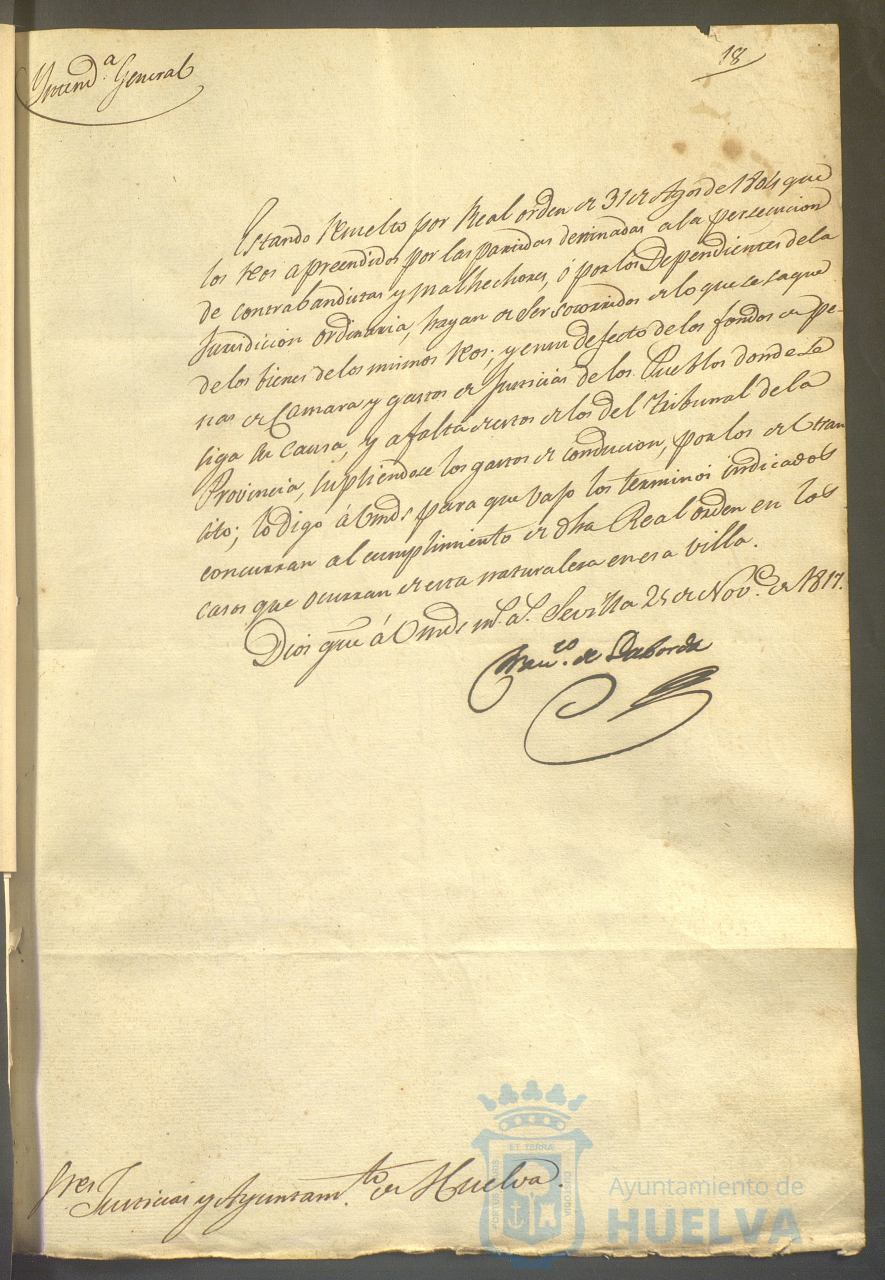 Yntend.ª General
18
Estando resuelto por Real orden de 31 de Agosº de 1804 que
los reos apreendidos por las partidas destinadas a la persecucion
de contrabandistas y malhechores, ó por los Dependientes de la
Jurisdicion ordinaria, hayan de ser socorridos de lo que se saque
de los bienes de los mismos reos; y en su defecto de los fondos de pe-
nas de Camara y gastos de Justicias de los Pueblos donde se
siga su causa, y a falta de estos de los del tribunal de la
Provincia, supliendose los gastos de conducion, por los de tran
sito; lo digo á Vmds para que vajo los terminos indicados
concurran al cumplimiento de dha Real orden en los
casos que ocurran de esta naturalesa en esa villa.
Dios gue á Vmds m.s a.s Sevilla 25 de Nov.e de 1817.
Fran.co de Laborda
Sres Justicias y Ayuntam.to de Huelva.
ET TERRAE
PORTUS MARIS
CUSTODIA
Ayuntamiento de
HUELVA